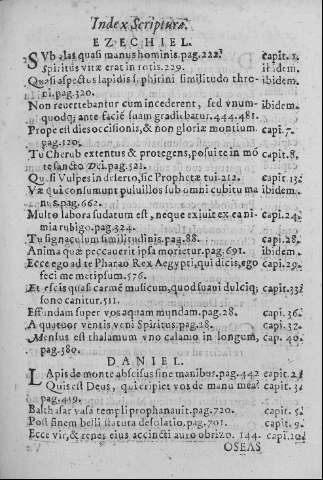 Index Scripturæ.
EZECHIEL.
SVb alas quasi manus hominis. pag. 222. capit. 1.
Spiritus vitæ erat in rotis. 229. ibidem.
Quasi aspectus lapidis saphirini similitudo thro- ibidem.
ni. pag. 320.
Non reuertebantur cum incederent, sed vnum- ibidem.
quodq; ante faciē suam gradiebatur. 444. 481.
Prope est dies occisionis, & non gloriæ montium capi. 7.
pag. 120.
Tu Cherub extentus & protegens, posui te in mō capit. 8.
te sancto Dei. pag. 521.
Quasi Vulpes in deserto, sic Prophetæ tui. 212. capit. 13.
Væ qui consumunt puluillos sub omni cubitu ma ibidem.
nus. pag. 662.
Multo labore sudatum est, neque exiuit ex ea ni- capit. 24.
mia rubigo. pag. 324.
Tu signaculum similitudinis. pag. 88. capi. 28.
Anima quæ peccauerit ipsa morietur. pag. 691. ibidem.
Ecce ego ad te Pharao Rex Aegypti, qui dicis, ego capi. 29.
feci me metipsum. 576.
Et es eis quasi carmē musicum, quod suaui dulciq; capi. 33.
sono canitur. 511.
Effundam super vos aquam mundam. pag. 28. capi. 36.
A quatuor ventis veni Spiritus. pag. 28. capi. 37.
Mensus est thalamum vno calamo in longum, cap. 40.
pag. 380.
DANIEL.
LApis de monte abscisus sine manibus. pag. 442 capit. 2.
Quis est Deus, qui eripiet vos de manu mea? capit. 3.
pag. 419.
Balthasar vasa templi prophanauit. pag. 720. capit. 5.
Post finem belli statura desolatio, pag. 701. capit. 9.
Ecce vir, & renes eius accincti auro obrizo. 144. capi. 10.
OSEAS